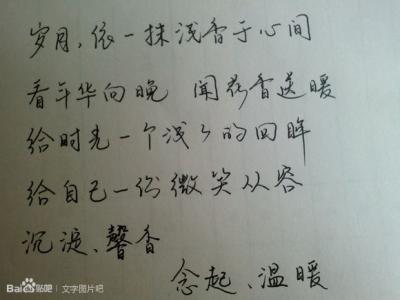 岁月，依一抹浅香于心间
看年华向晚 闻花香送暖
给时光一个浅々的回眸
给自己一份微笑从容
沉淀、馨香
念起、温暖
Bai贴吧 | 文字图片吧